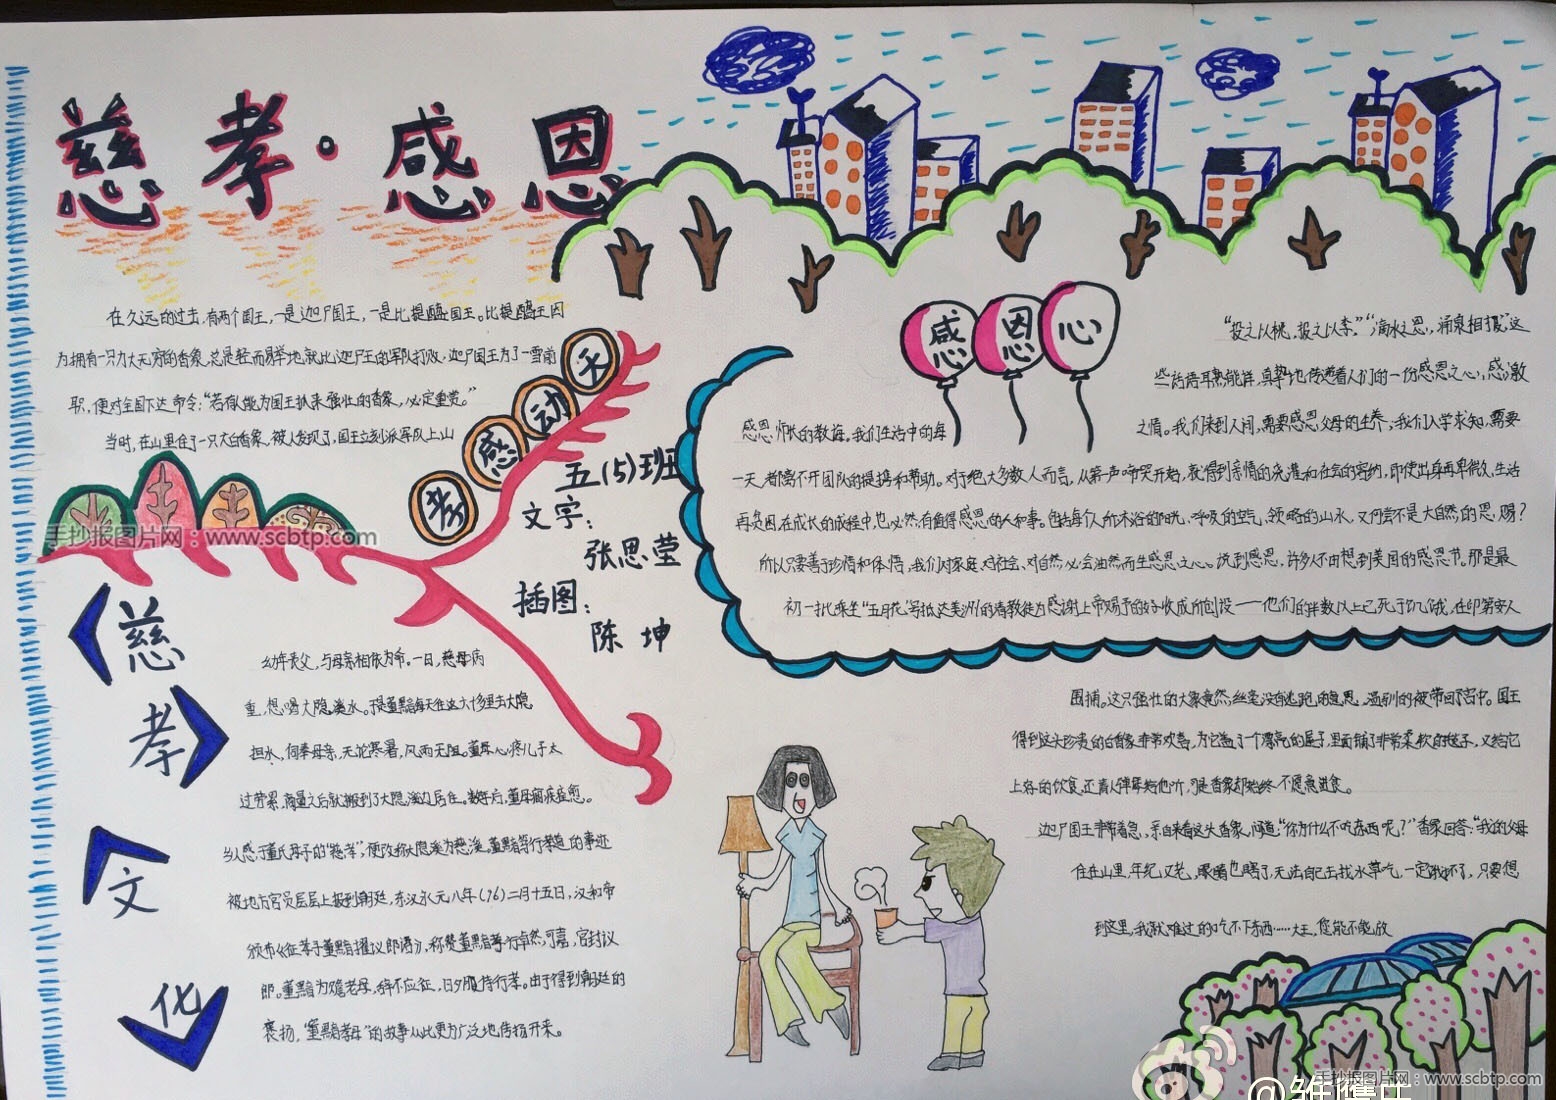 慈孝·感恩
在久远的过去,有两个国王,一是迦尸国王,一是比提醯国王。比提醯王因
为拥有一只力大无穷的香象,总是轻而易举地就比迦尸王的军队打败。迦尸国王为了一雪前
职,便对全国下达命令:“若有人能为国王抓来强壮的香象,必定重赏。”
当时,在山里住了一只大白香象,被人发现了,国王立刻派军队上山
孝感动天
五(5)班
文字:
张思莹
插图:
陈坤
手抄报图片网:www.scbtp.com
感恩心
“投之以桃,报之以李。”“滴水之恩,涌泉相报”,这
些话语耳熟能详,真挚地传递着人们的一份感恩之心,感激
之情。我们来到人间,需要感恩父母的生养;我们入学求知,需要
感恩师长的教诲。我们生活中的每
一天,都离不开团队的提携和帮助。对于绝大多数人而言,从第一声啼哭开始,就得到亲情的浇灌和社会的容纳,即使出身再卑微、生活
再贫困,在成长的成程中也必然有值得感恩的人和事。包括每个人所沐浴的阳光、呼吸的空气、领略的山水,又何尝不是大自然的恩赐?
所以只要善于珍惜和体悟,我们对家庭、对社会、对自然必会油然而生感恩之心。说到感恩,许多人不由想到美国的感恩节。那是最
初一批乘坐“五月花”号抵达美洲的清教徒为感谢上帝赐予的好收成所创设——他们的半数以上已死于饥饿,在印第安人
慈孝文化
幼年丧父,与母亲相依为命。一日,慈母病
重,想喝大隐溪水。于是董黯每天在这六十多里去大隐
担水,伺奉母亲,无论寒暑,风雨无阻。董母心疼儿子太
过劳累,商量之后就搬到了大隐溪边居住。数年后,董母痼疾痊愈。
当人感于董氏母子的“慈孝”,便改称大隐溪为慈溪。董黯笃行孝道的事迹
被地方官员层层上报到朝廷,东汉永元八年(96)二月十五日,汉和帝
颁布《征孝子董黯擢议郎诏》,称赞董黯孝行卓然,可嘉,官封议
郎。董黯为赡老母,辞不应征,日夕服侍行孝。由于得到朝廷的
褒扬,“董黯孝母”的故事从此更为广泛地传扬开来。
围捕。这只强壮的大象竟然丝毫没有逃跑的意思,温驯的被带回了宫中。国王
得到这头珍贵的白香象非常欢喜,为它盖了一个漂亮的屋子,里面铺了非常柔软的毯子,又给它
上好的饮食,还请人弹琴给他听,可是香象却始终不愿意进食。
迦尸国王非常着急,亲自来看这头香象,问道:“你为什么不吃东西呢?”香象回答:“我的父母
住在山里,年纪又老,眼睛也瞎了,无法自己去找水草吃,一定饿坏了,只要想
到这里,我就难过的吃不下东西……大王,您能不能放
手抄报图片网:www.scbtp.com